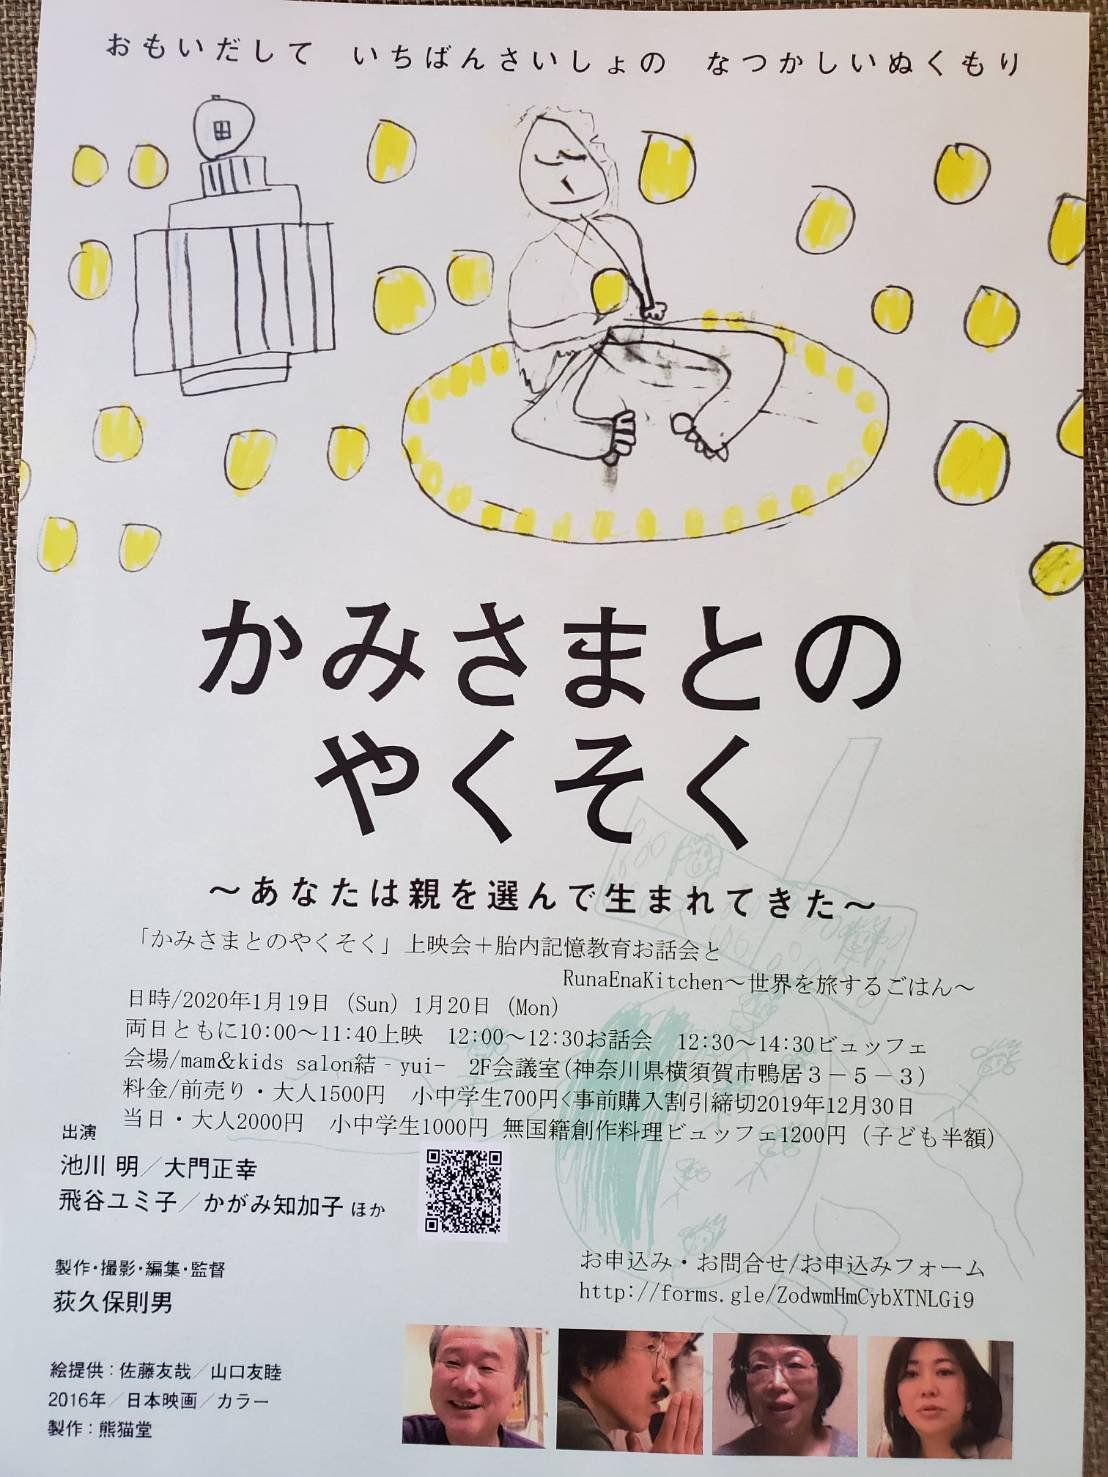 おもいだして　いちばんさいしょの　なつかしいぬくもり
かみさまとの
やくそく
～あなたは親を選んで生まれてきた～
「かみさまとのやくそく」上映会＋胎内記憶教育お話会と
RunaEnaKitchen～世界を旅するごはん～
日時/2020年1月19日 (Sun) 1月20日 (Mon)
両日ともに10:00～11:40上映　12:00～12:30お話会　12:30～14:30ビュッフェ
会場/mam&kids salon結‐yui-　2F会議室(神奈川県横須賀市鴨居３－５－３)
料金/前売り・大人1500円　小中学生700円<事前購入割引締切2019年12月30日
当日・大人2000円　小中学生1000円 無国籍創作料理ビュッフェ1200円 (子ども半額)
出演
池川 明／大門正幸
飛谷ユミ子／かがみ知加子 ほか
製作・撮影・編集・監督
荻久保則男
お申込み・お問合せ/お申込みフォーム
http://forms.gle/ZodwmHmCybXTNLGi9
絵提供：佐藤友哉／山口友睦
2016年／日本映画／カラー
製作：熊猫堂